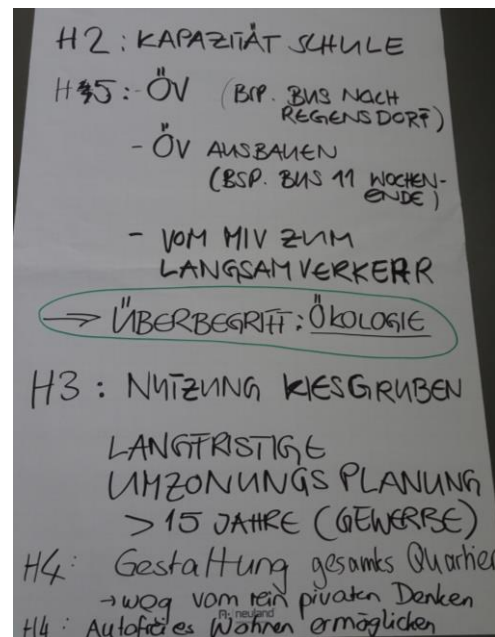 H2 : KAPAZITÄT SCHULE
H5 : - ÖV (BSP. BUS NACH
REGENSDORF)
- ÖV AUSBAUEN
(BSP. BUS 11 WOCHEN-
ENDE)
- VOM MIV ZUM
LANGSAMVERKEHR
→ ÜBERBEGRIFF : ÖKOLOGIE
H3 : NUTZUNG KIESGRUBEN
LANGFRISTIGE
UMZONUNGSPLANUNG
> 15 JAHRE (GEWERBE)
H4 : Gestaltung gesamts Quartier
→ weg vom rein pivaten Denken
neuland
H4 : Autofreies Wohnen ermöglichen